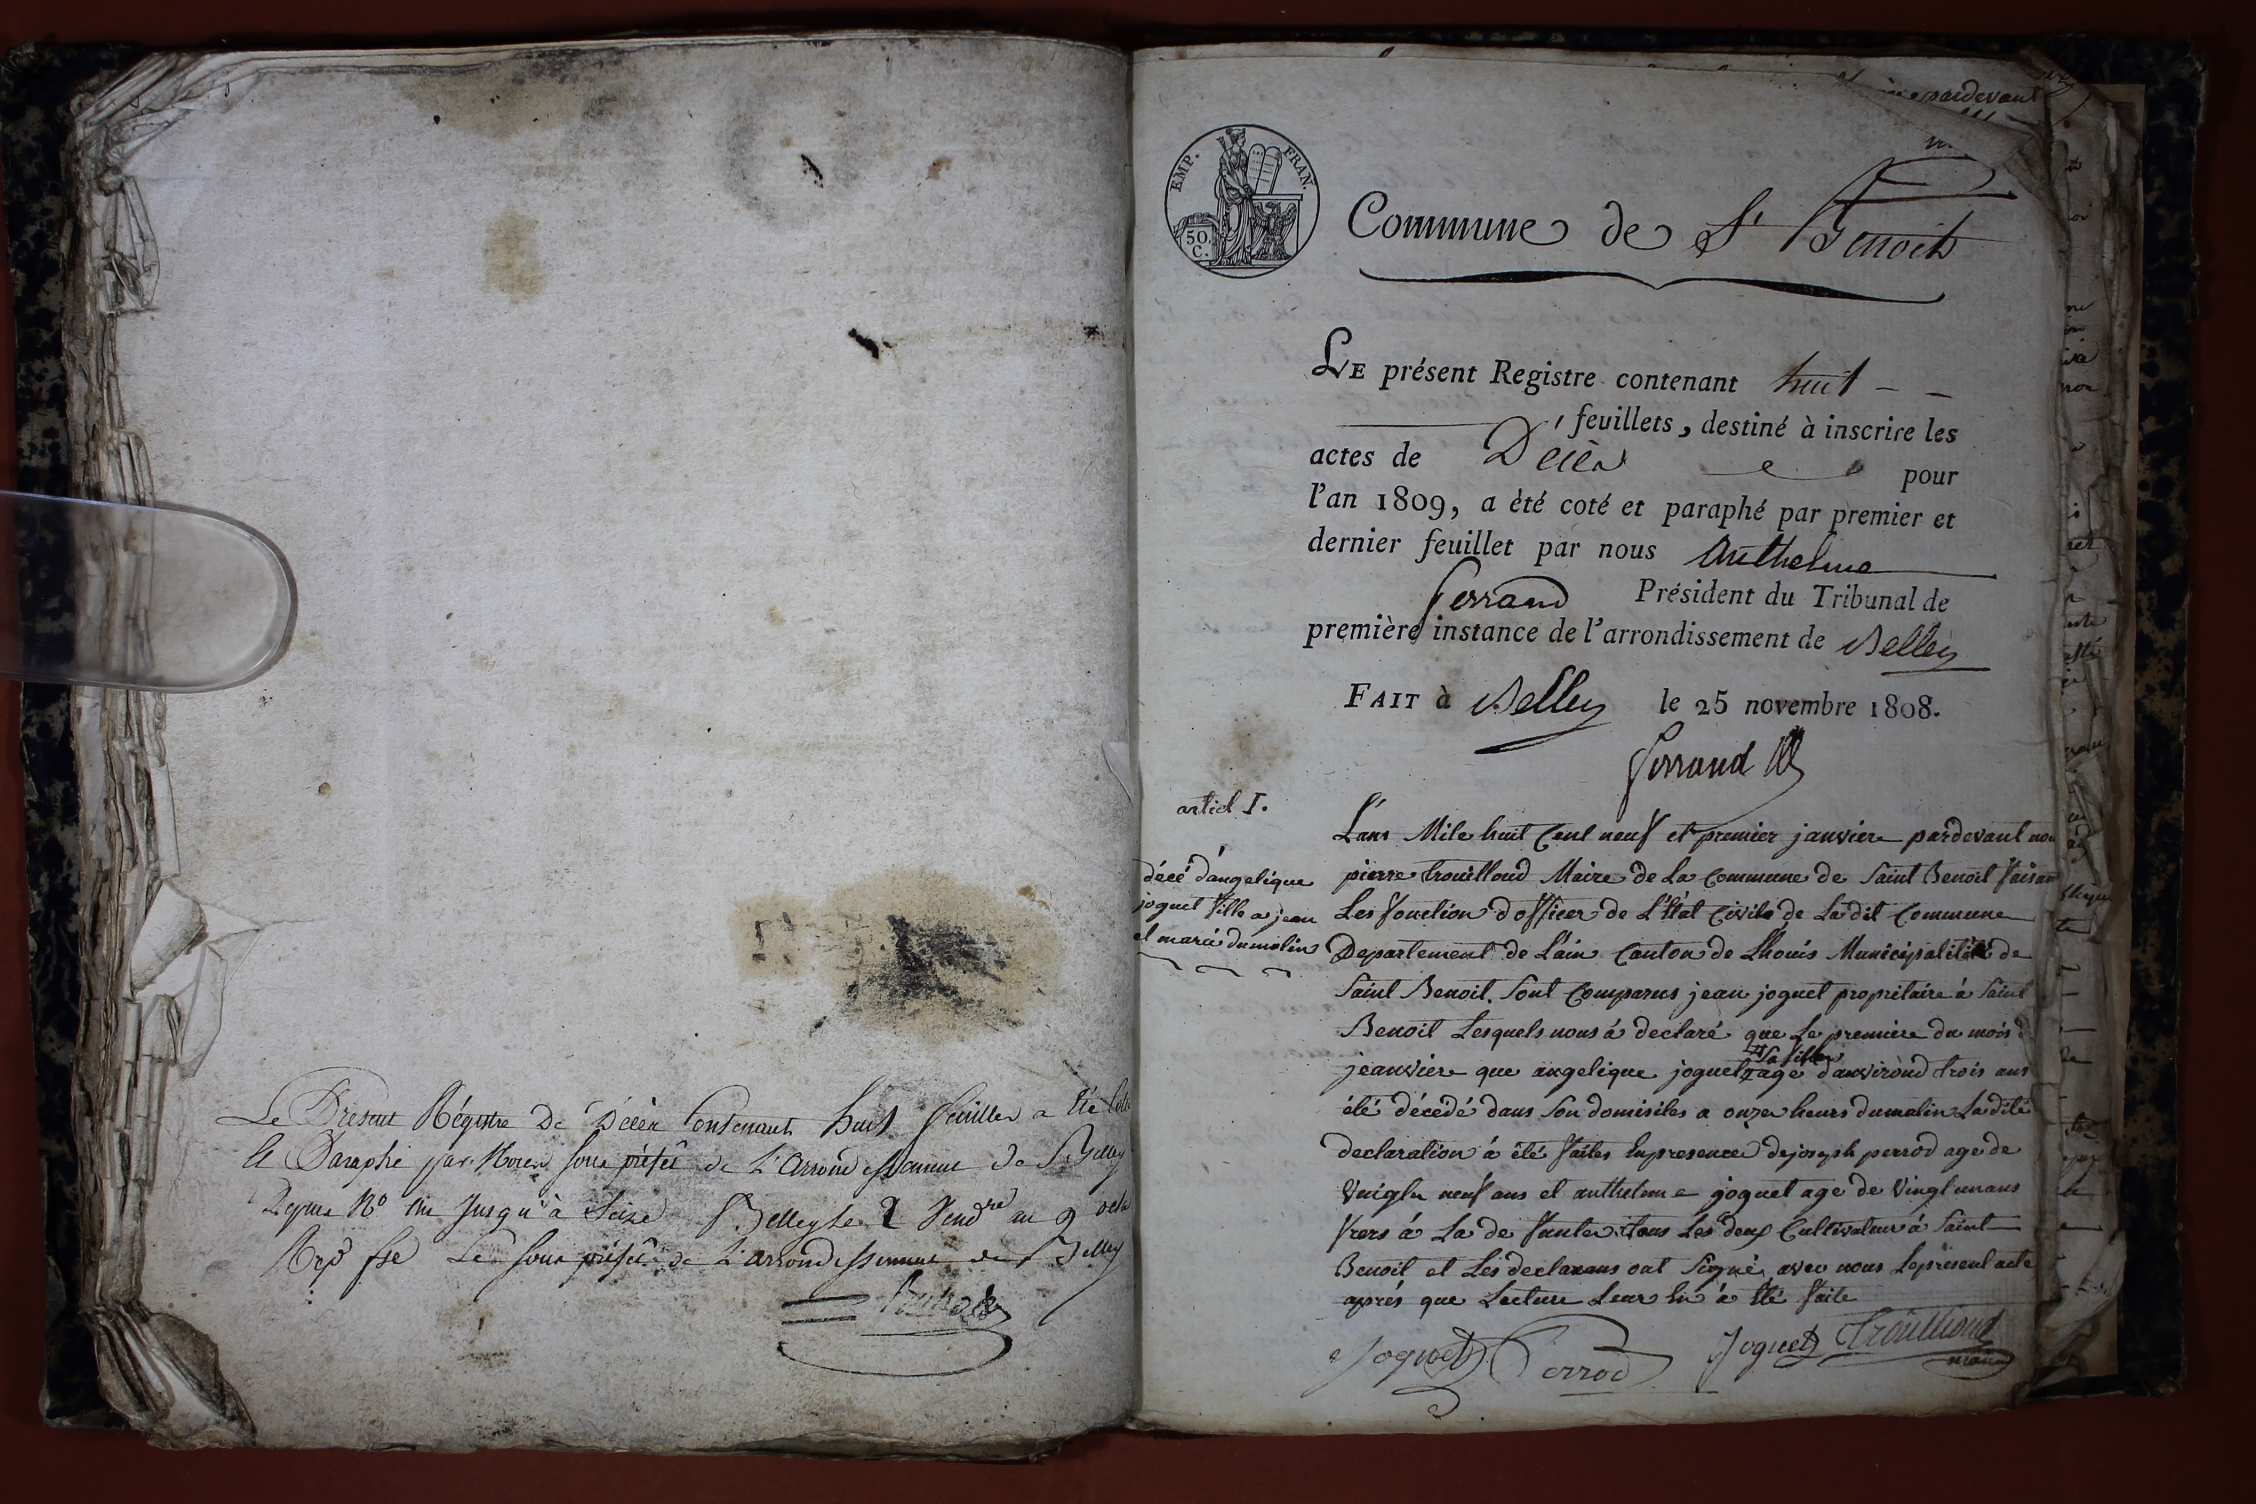 Le Present Régistre De Décèr Contenant huit feuiller a été Coté
Et Paraphé par Nous sous préfêt de L'Arrondissement de Belley
Depuis N° un Jusqu'à Seize Belley le 2 Vend.re an 9
Rep fse Le Sous préfêt de L'arrondissement de Belley
EMP. FRAN.
50. C.
Commune de St Benoit
LE présent Registre contenant huit
feuillets, destiné à inscrire les
actes de Décès pour
l'an 1809, a été coté et paraphé par premier et
dernier feuillet par nous Anthelme
Ferrand Président du Tribunal de
première instance de l'arrondissement de Belley
FAIT à Belley le 25 novembre 1808.
Ferrand
articl I.
décé d'angelique
joguet fille a jean
et marie dumolin
L'ans Mile huit Cent neuf et premier janvier pardevant nou
pierre trouilloud Maire de La Commune de Saint Benoit faisan
Les fonction d'officer de L'état Civile de La dit Commune
Departement de L'ain Canton de Lhouis Municipalité de
Saint Benoit. Sont Comparus jean joguet propritaire á Saint
Benoit Lesquels nous á declaré que Le premiere du mois d
jeanviere que angelique joguet sa fille agé d'anvirond trois ans
été décédé dans son domisiles a onze heurs du matin La dite
declaration á été faites En presence de joseph perrod age de
Vingtn neuf ans et anthelme joguet age de Vingt unans
frers á La de funte tous Les deux Cultivateur á Saint
Benoit et Les declarans ont Signé avec nous Le présent acte
aprés que Lecture Leur En á été faite
Joguet Perrod Joguet Trouilloud
maire
pardevant